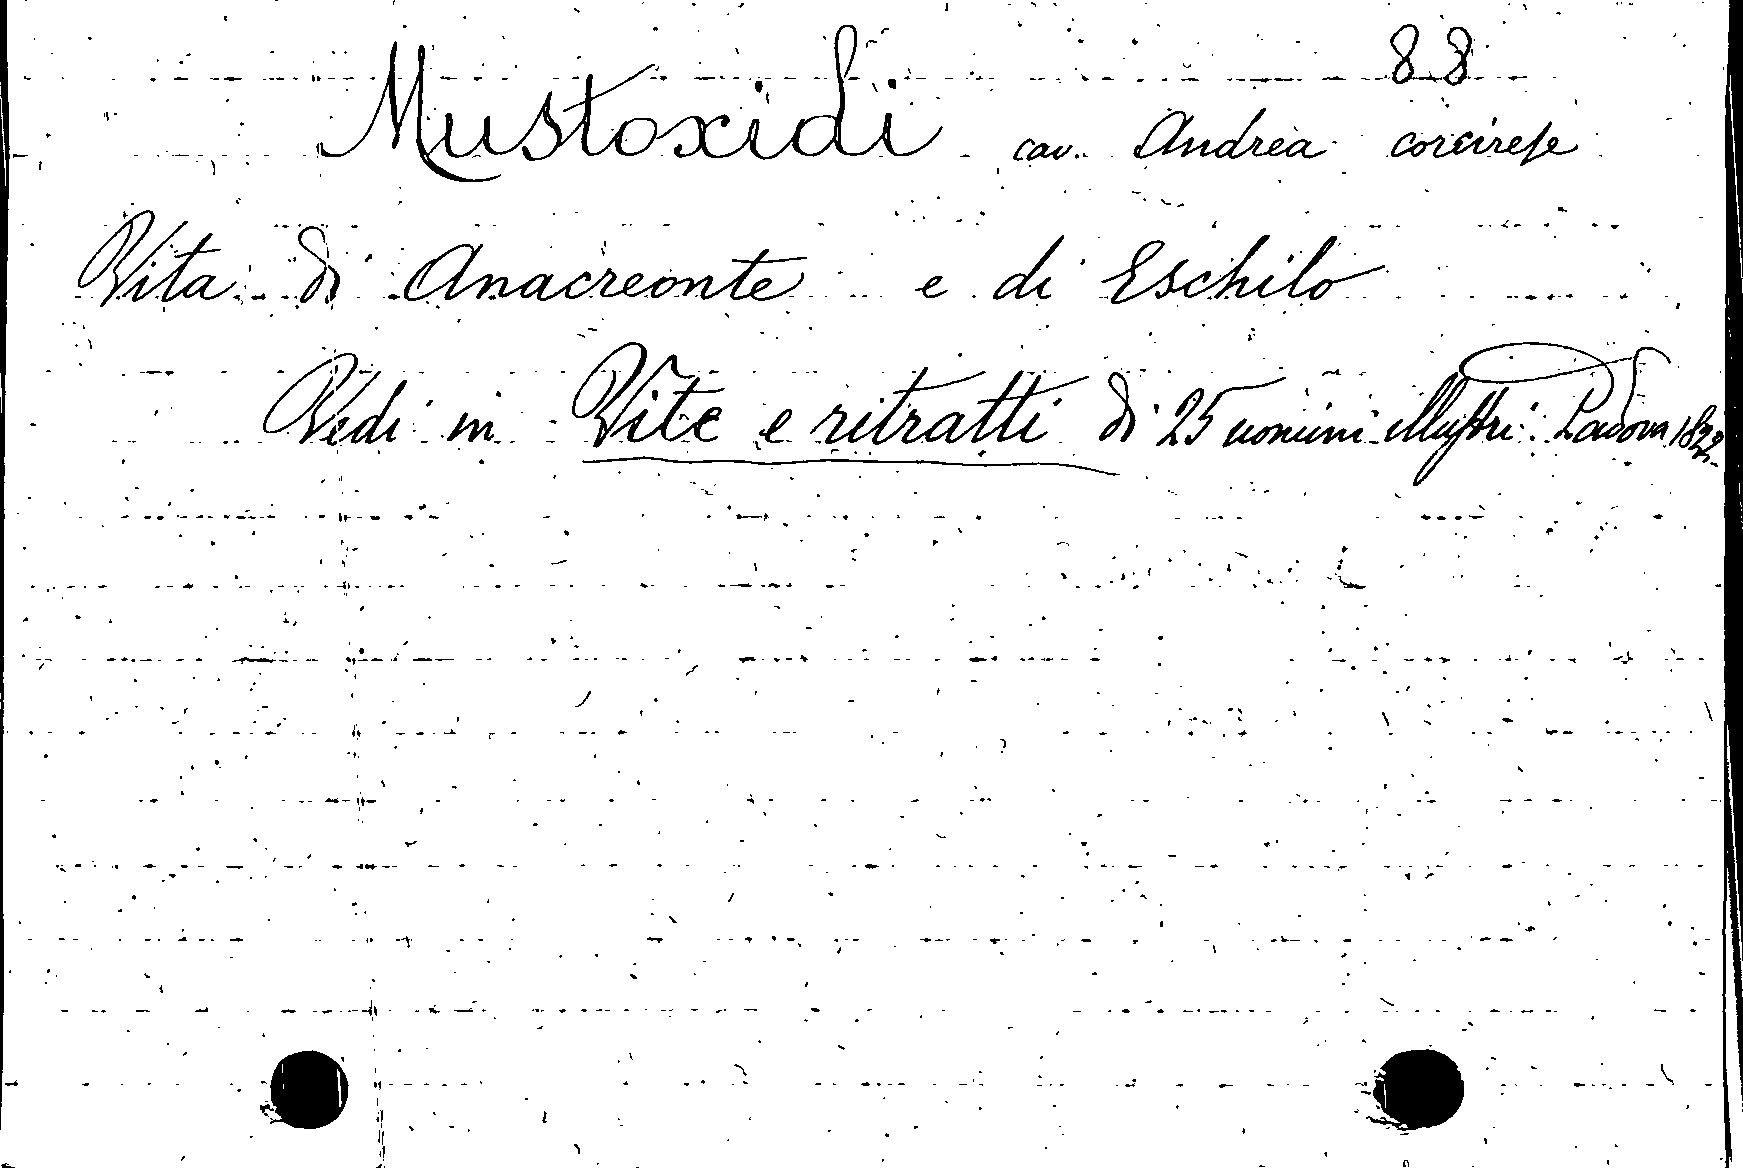 88
Mustoxidi cav. Andrea corcirese
Vita di Anacreonte e di Eschilo
Vedi in Vite e ritratti di 25 uomini illustri. Padova 1822.